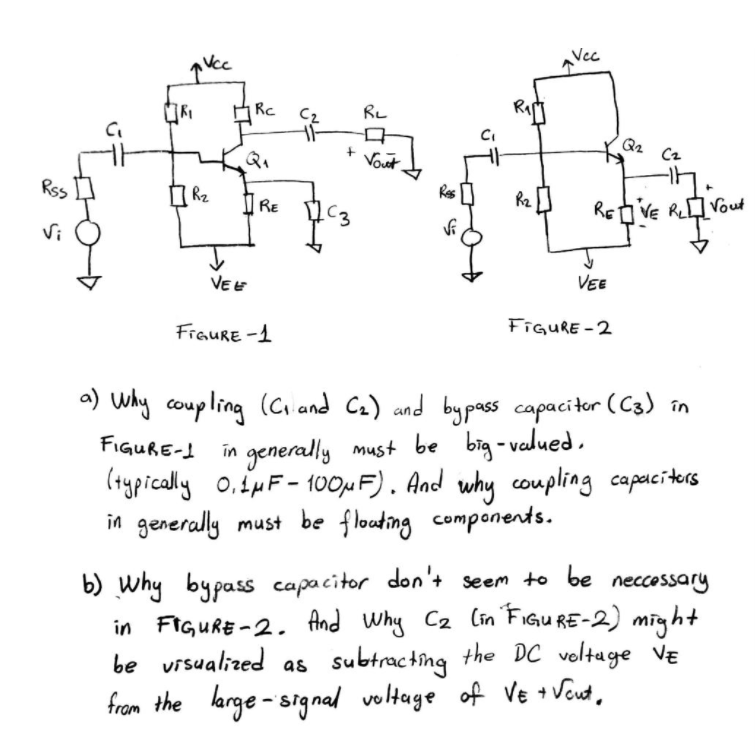 Vcc
R1
Rc
C2
RL
C1
+ Vout -
Q1
Rss
R2
RE
C3
Vi
VEE
FIGURE -1
Vcc
R1
C1
Q2
C2
Rss
R2
RE
+ VE -
RL
+ Vout -
Vi
VEE
FIGURE - 2
a) Why coupling (C1 and C2) and bypass capacitor (C3) in
FIGURE-1 in generally must be big-valued.
(typically 0,1μF - 100μF). And why coupling capacitors
in generally must be floating components.
b) Why bypass capacitor don't seem to be neccessary
in FIGURE-2. And Why C2 (in FIGURE-2) might
be visualized as subtracting the DC voltage VE
from the large-signal voltage of VE + Vout.